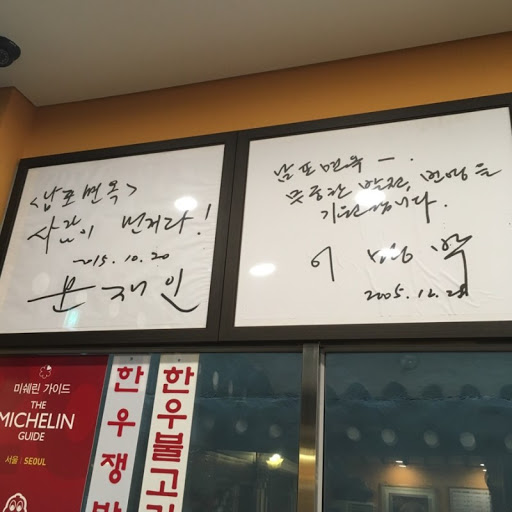 <남포면옥>
사람이 먼저다!
2015.10.20
문재인
남포면옥 一.
무궁한 발전, 번영을
기원합니다.
이명박
2005.12.28
미쉐린 가이드
THE
MICHELIN
GUIDE
서울 | SEOUL
한우쟁반
한우불고기